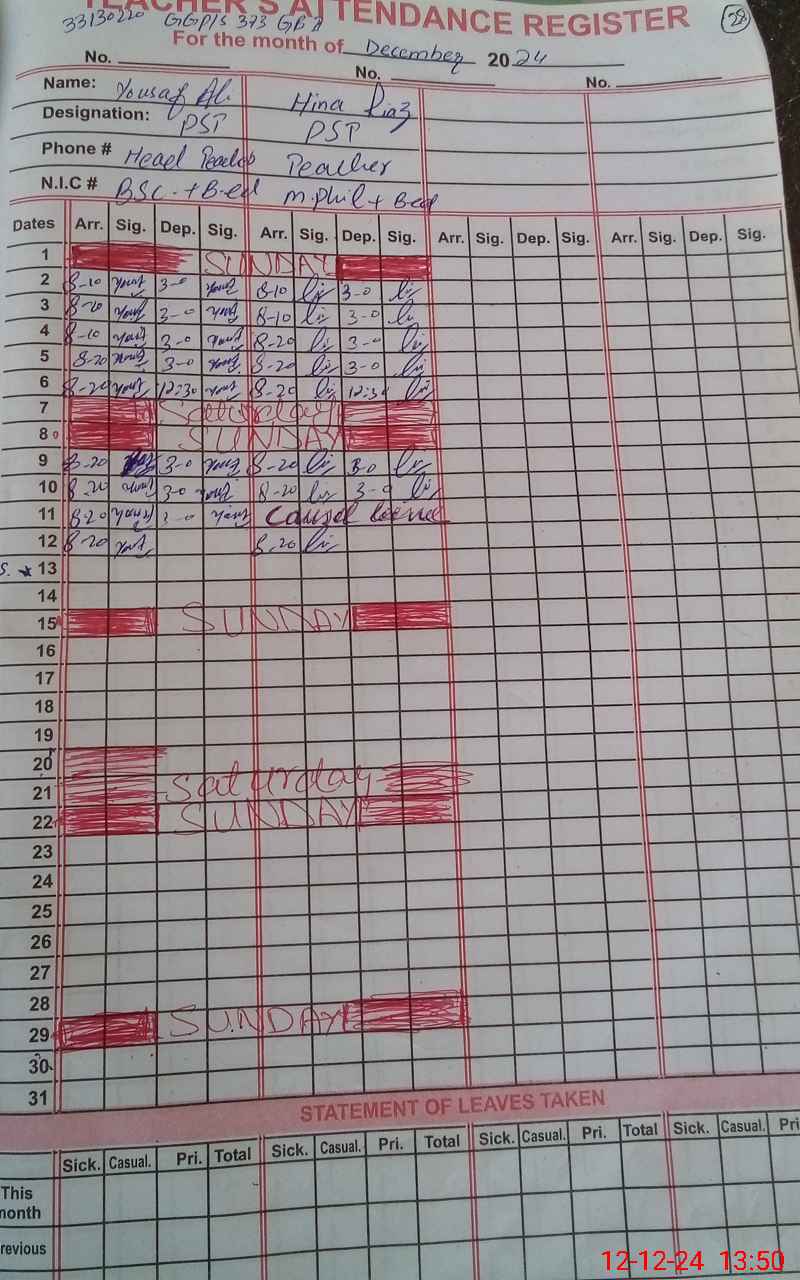 TEACHER'S ATTENDANCE REGISTER
33130220 GGP/S 373 GB
For the month of December 2024
No. No. No.
Name: Yousaf Ali Hina Riaz
Designation: PST PST
Phone # Head Teacher Teacher
N.I.C # BSC + B-ed M.phil + Bed
Dates Arr. Sig. Dep. Sig. Arr. Sig. Dep. Sig. Arr. Sig. Dep. Sig. Arr. Sig. Dep. Sig.
1 SUNDAY
2 8-10 3-0 8-10 3-0
3 8-20 3-0 8-10 3-0
4 8-10 3-0 8-20 3-0
5 8-20 3-0 8-20 3-0
6 8-20 12:30 8-20 12:30
7 Saturday
8 SUNDAY
9 8-20 3-0 8-20 3-0
10 8-20 3-0 8-20 3-0
11 8-20 3-0 Causal leave
12 8-20 8-20
13
14
15 SUNDAY
16
17
18
19
20
21 Saturday
22 SUNDAY
23
24
25
26
27
28
29 SUNDAY
30
31
STATEMENT OF LEAVES TAKEN
Sick. Casual. Pri. Total Sick. Casual. Pri. Total Sick. Casual. Pri. Total Sick. Casual. Pri
This
month
revious
12-12-24 13:50